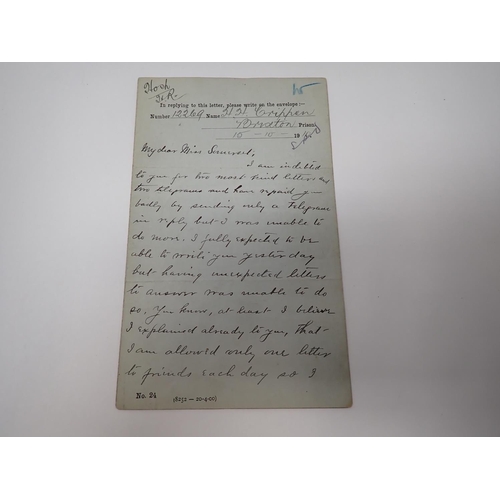 In replying to this letter, please write on the envelope:—
Number 12269 Name H H Crippen
Brixton Prison
15 - 10 - 19
My dear Miss Somerset,
I am indebted
to you for two most kind letters and
two telegrams and have repaid you
badly by sending only a telegram
in reply but I was unable to
do more. I fully expected to be
able to write you yesterday
but having unexpected letters
to answer was unable to do
so. You know, at least I believe
I explained already to you, that
I am allowed only one letter
to friends each day so I
No. 24 (8252—20-4-00)